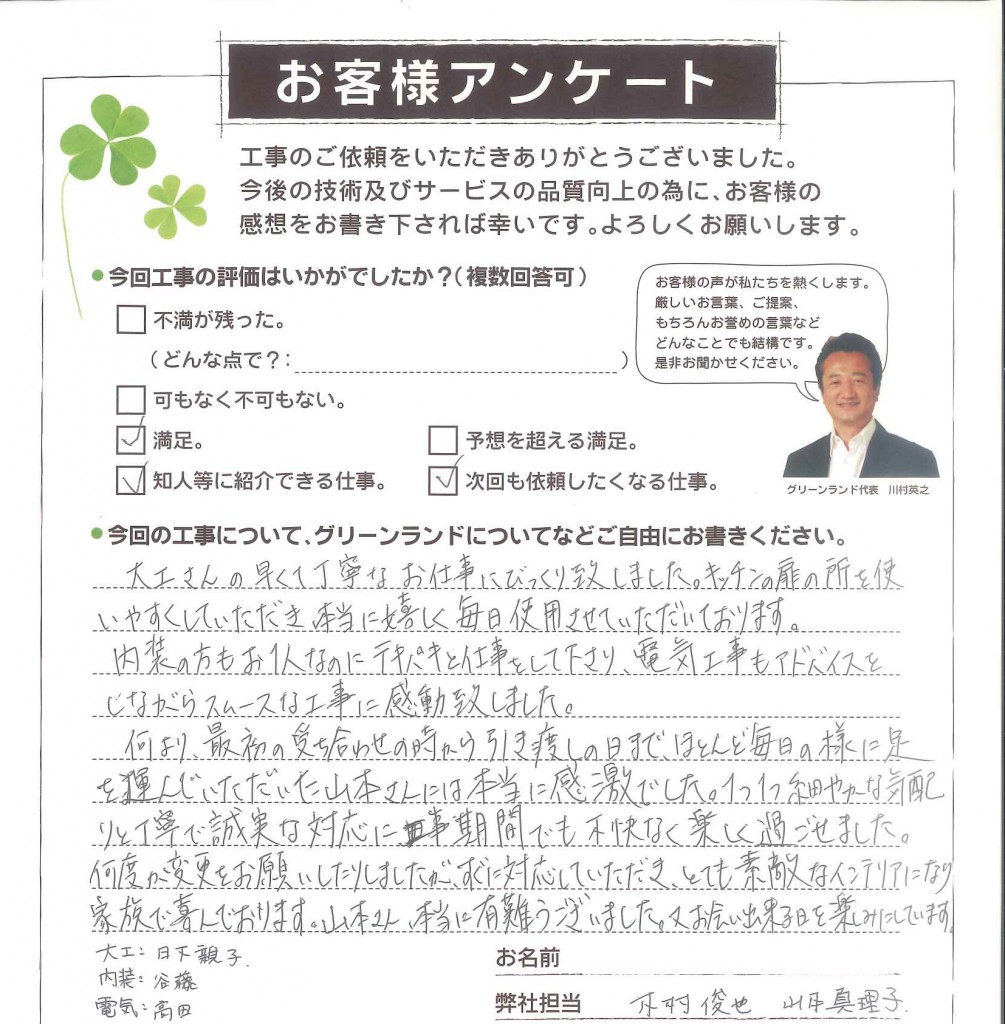 お客様アンケート
工事のご依頼をいただきありがとうございました。
今後の技術及びサービスの品質向上の為に、お客様の
感想をお書き下されば幸いです。よろしくお願いします。
●今回工事の評価はいかがでしたか？（複数回答可）
不満が残った。
（どんな点で？：　）
可もなく不可もない。
満足。
予想を超える満足。
知人等に紹介できる仕事。
次回も依頼したくなる仕事。
お客様の声が私たちを熱くします。
厳しいお言葉、ご提案、
もちろんお誉めの言葉など
どんなことでも結構です。
是非お聞かせください。
グリーンランド代表　川村英之
●今回の工事について、グリーンランドについてなどご自由にお書きください。
大工さんの早くて丁寧なお仕事にびっくり致しました。キッチンの扉の所を使
いやすくしていただき、本当に嬉しく毎日使用させていただいております。
内装の方もお1人なのにテキパキと仕事をして下さり、電気工事もアドバイスを
しながらスムースな工事に感動致しました。
何より、最初の受ち合わせの時から引き渡しの日まで、ほとんど毎日の様に足
を運んでいただいた山本さんには本当に感激でした。1つ1つ細やかな気配
りと丁寧で誠実な対応に工事期間でも不快なく楽しく過ごせました。
何度か変更をお願いしたりしましたが、すぐに対応していただき、とても素敵なインテリアになり
家族で喜んでおります。山本さん、本当に有難うございました。又お会い出来る日を楽しみにしています。
大工：日下親子.
内装：谷藤
電気：高田
お名前
弊社担当　木村俊也　山本真理子